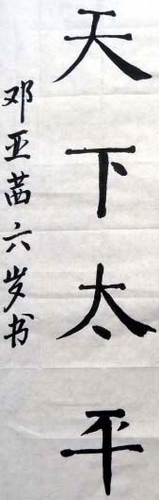 天下太平
邓亚茜六岁书